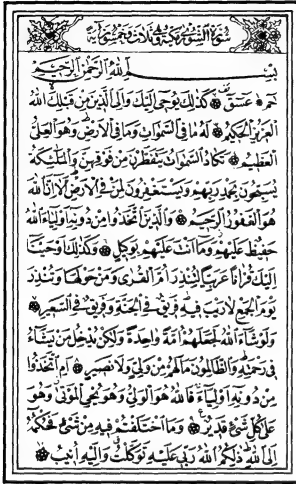 سورة الشورى مكية وهي ثلاث وخمسون آية
بسم الله الرحمن الرحيم
حم ۝ عسق ۝ كذلك يوحي إليك وإلى الذين من قبلك الله
العزيز الحكيم ۝ له ما في السموات وما في الأرض وهو العلي
العظيم ۝ تكاد السموات يتفطرن من فوقهن والملئكة
يسبحون بحمد ربهم ويستغفرون لمن في الأرض ألا إن الله
هو الغفور الرحيم ۝ والذين اتخذوا من دونه أولياء الله
حفيظ عليهم وما أنت عليهم بوكيل ۝ وكذلك أوحينا
إليك قرآنا عربيا لتنذر أم القرى ومن حولها وتنذر
يوم الجمع لا ريب فيه فريق في الجنة وفريق في السعير ۝
ولو شاء الله لجعلهم أمة واحدة ولكن يدخل من يشاء
في رحمته والظالمون ما لهم من ولي ولا نصير ۝ أم اتخذوا
من دونه أولياء فالله هو الولي وهو يحيي الموتى وهو
على كل شيء قدير ۝ وما اختلفتم فيه من شيء فحكمه
إلى الله ذلكم الله ربي عليه توكلت وإليه أنيب ۝